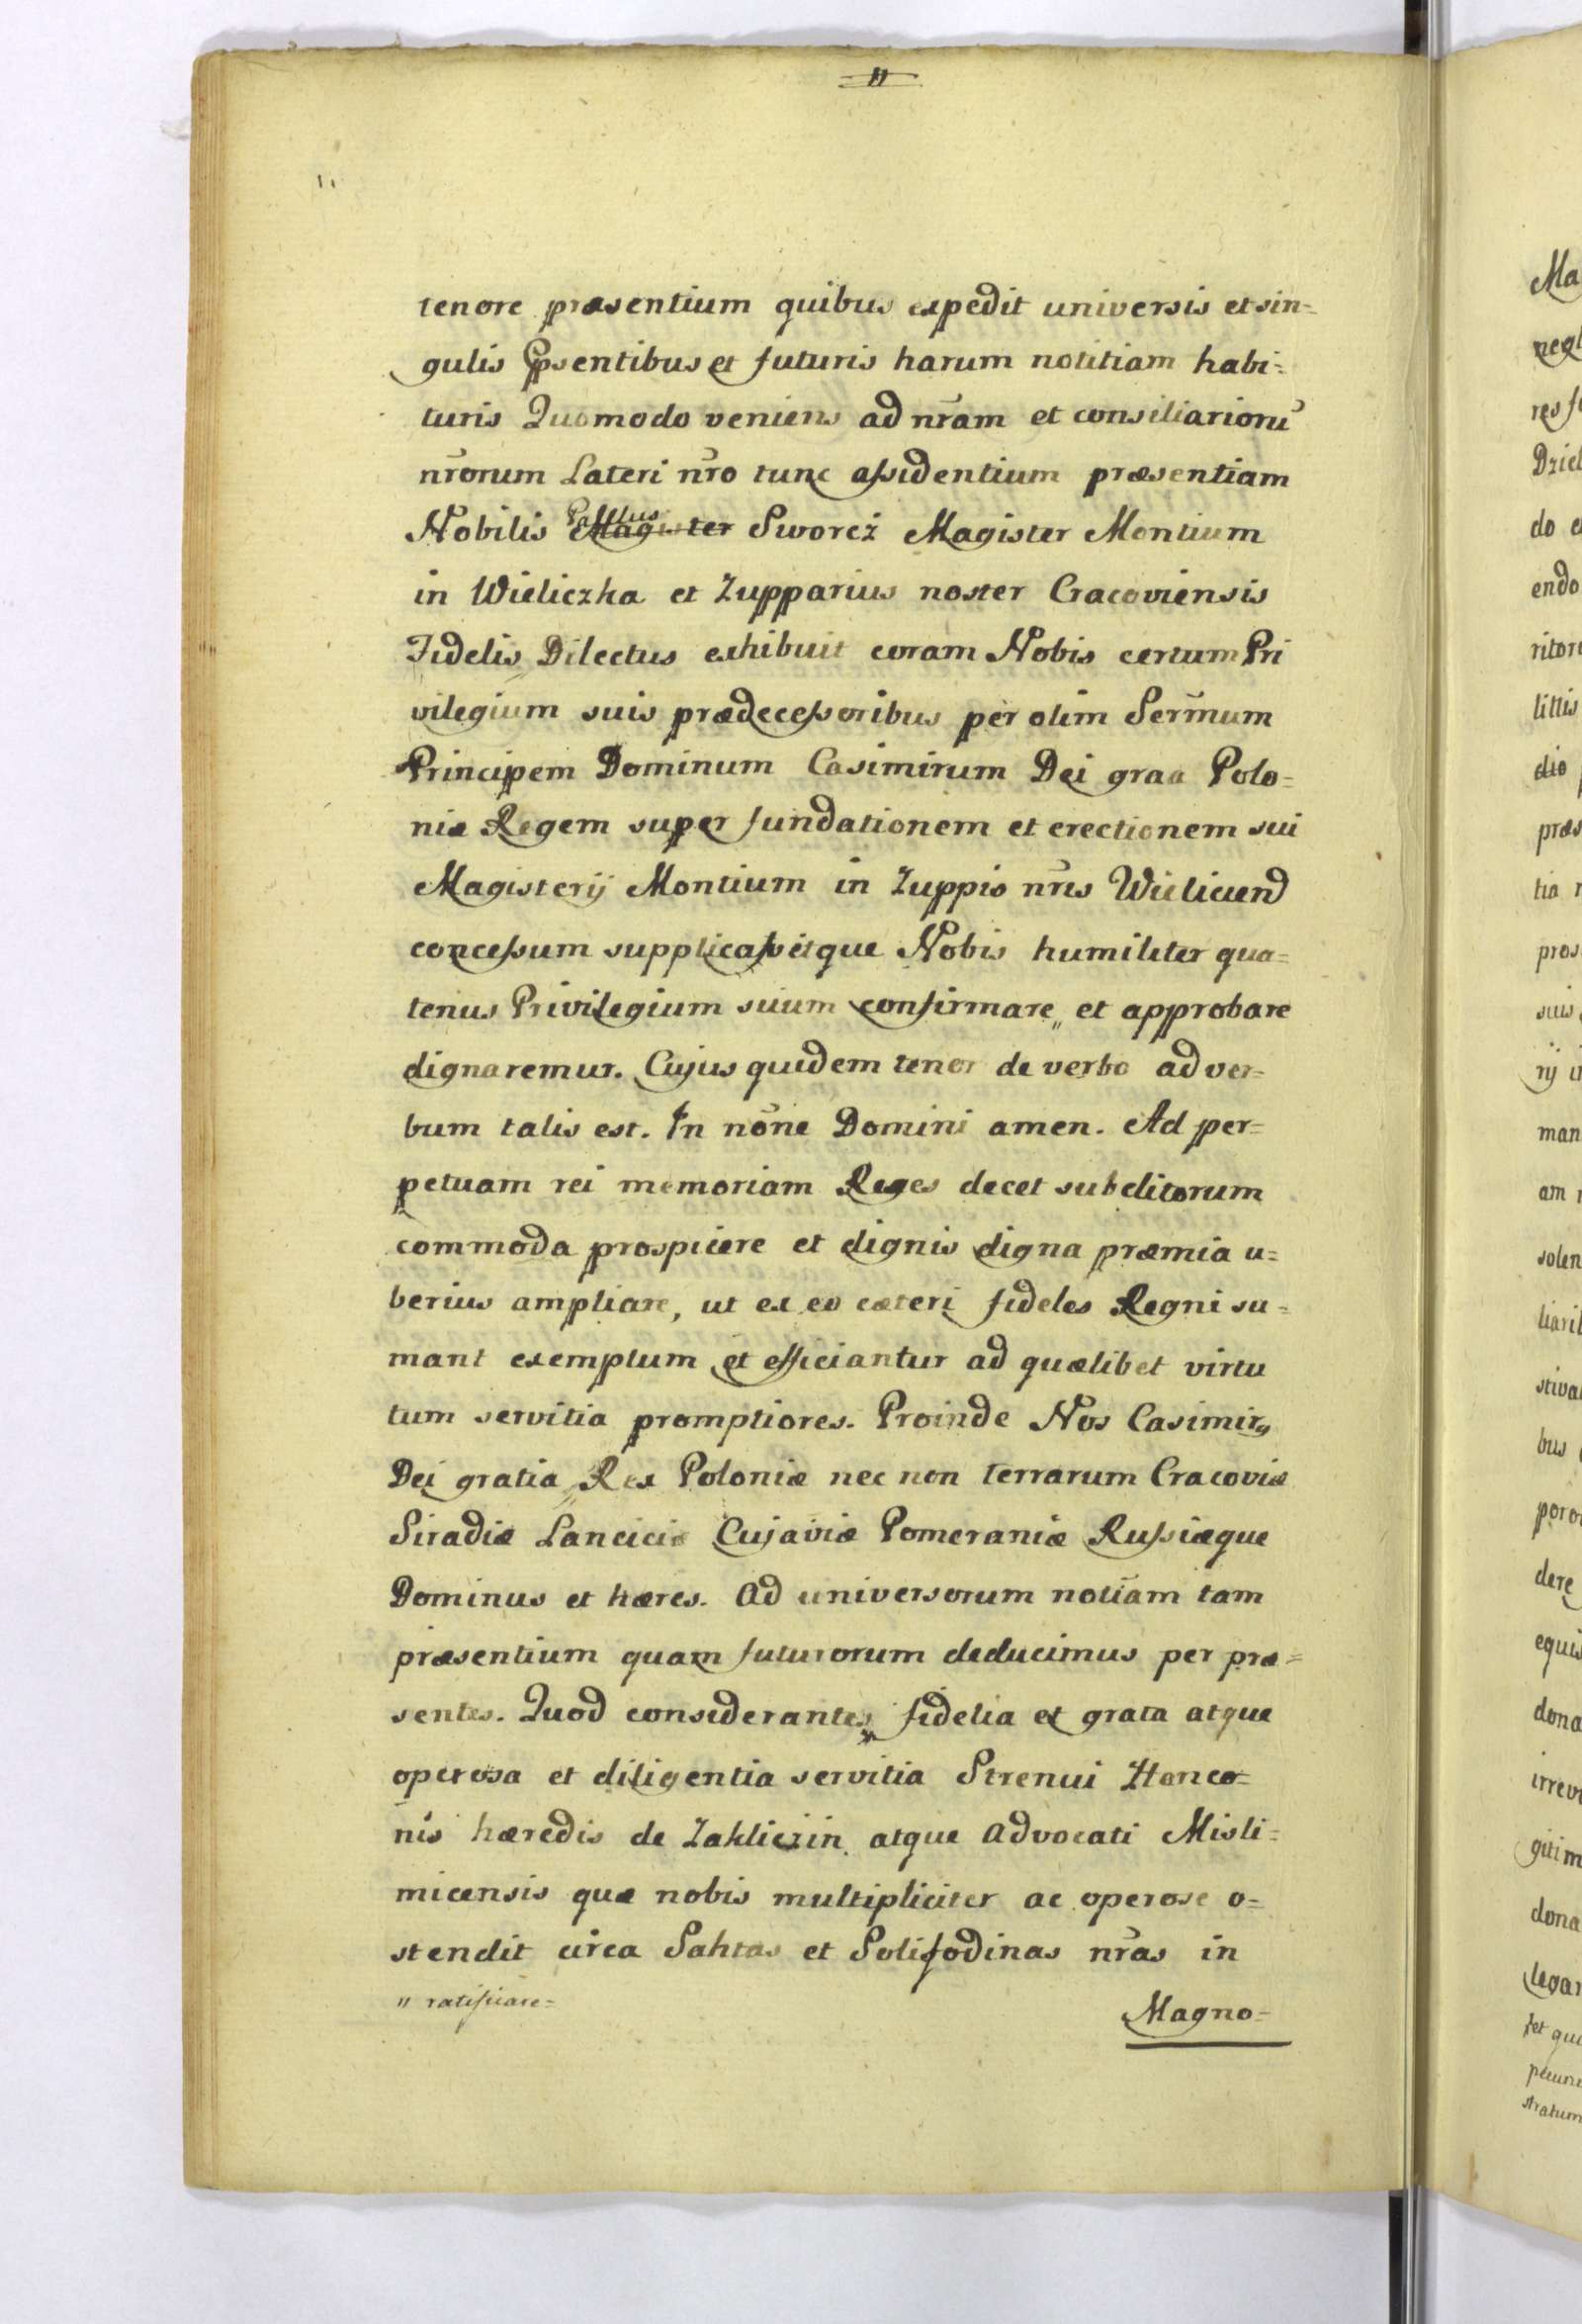 11
11
tenore præsentium quibus expedit universis et sin=
gulis Ppsentibus et futuris harum notitiam habi=
turis Quomodo veniens ad nr̃am et consiliarioru᷃
nr̃orum Lateri nr̃o tunc assidentium præsentiam
Nobilis Paulus Magister Sworcż Magister Montium
in Wieliczka et Zupparius noster Cracoviensis
Fidelis Dilectus exhibuit coram Nobis certum Pri
vilegium suis prædecessoribus per olim Serm̃um
Principem Dominum Casimirum Dei graa Polo=
niæ Regem super fundationem et erectionem sui
Magisterij Montium in Zuppis nr̃is Wieliciend
concessum supplicavitque Nobis humiliter qua=
tenus Privilegium suum confirmare „ et approbare
dignaremur. Cujus quidem tenor de verbo ad ver=
bum talis est. In no͂ne Domini amen. Ad per=
petuam rei memoriam Reges decet subditorum
commoda prospicere et dignis digna præmia u=
berius ampliare, ut ex eo cæteri fideles Regni su=
mant exemplum et efficiantur ad quælibet virtu
tum servitia promptiores. Proinde Nos Casimirꝯ
Dei gratia Rex Poloniæ nec non terrarum Cracoviæ
Siradiæ Lanciciæ Cujaviæ Pomeraniæ Russiæque
Dominus et hæres. Ad universorum notĩam tam
præsentium quam futurorum deducimus per præ=
sentes. Quod considerantes fidelia et grata atque
operosa et diligentia servitia Strenui Hanco=
nis hæredis de Zakliczin atque Advocati Misli=
micensis quæ nobis multipliciter ac operose o=
stendit circa Sahtas et Solifodinas nr̃as in
„ ratificare=
Magno=
Ma
negl
res f
Dziel
do e
endo
ritor
littis
dio p
præs
tia n
pros
suis
rij i
man
am
solen
liaril
stiva
bus
poro
dere
equis
dona
irrev
gitim
dona
legar
et qui
pecuni
stratum